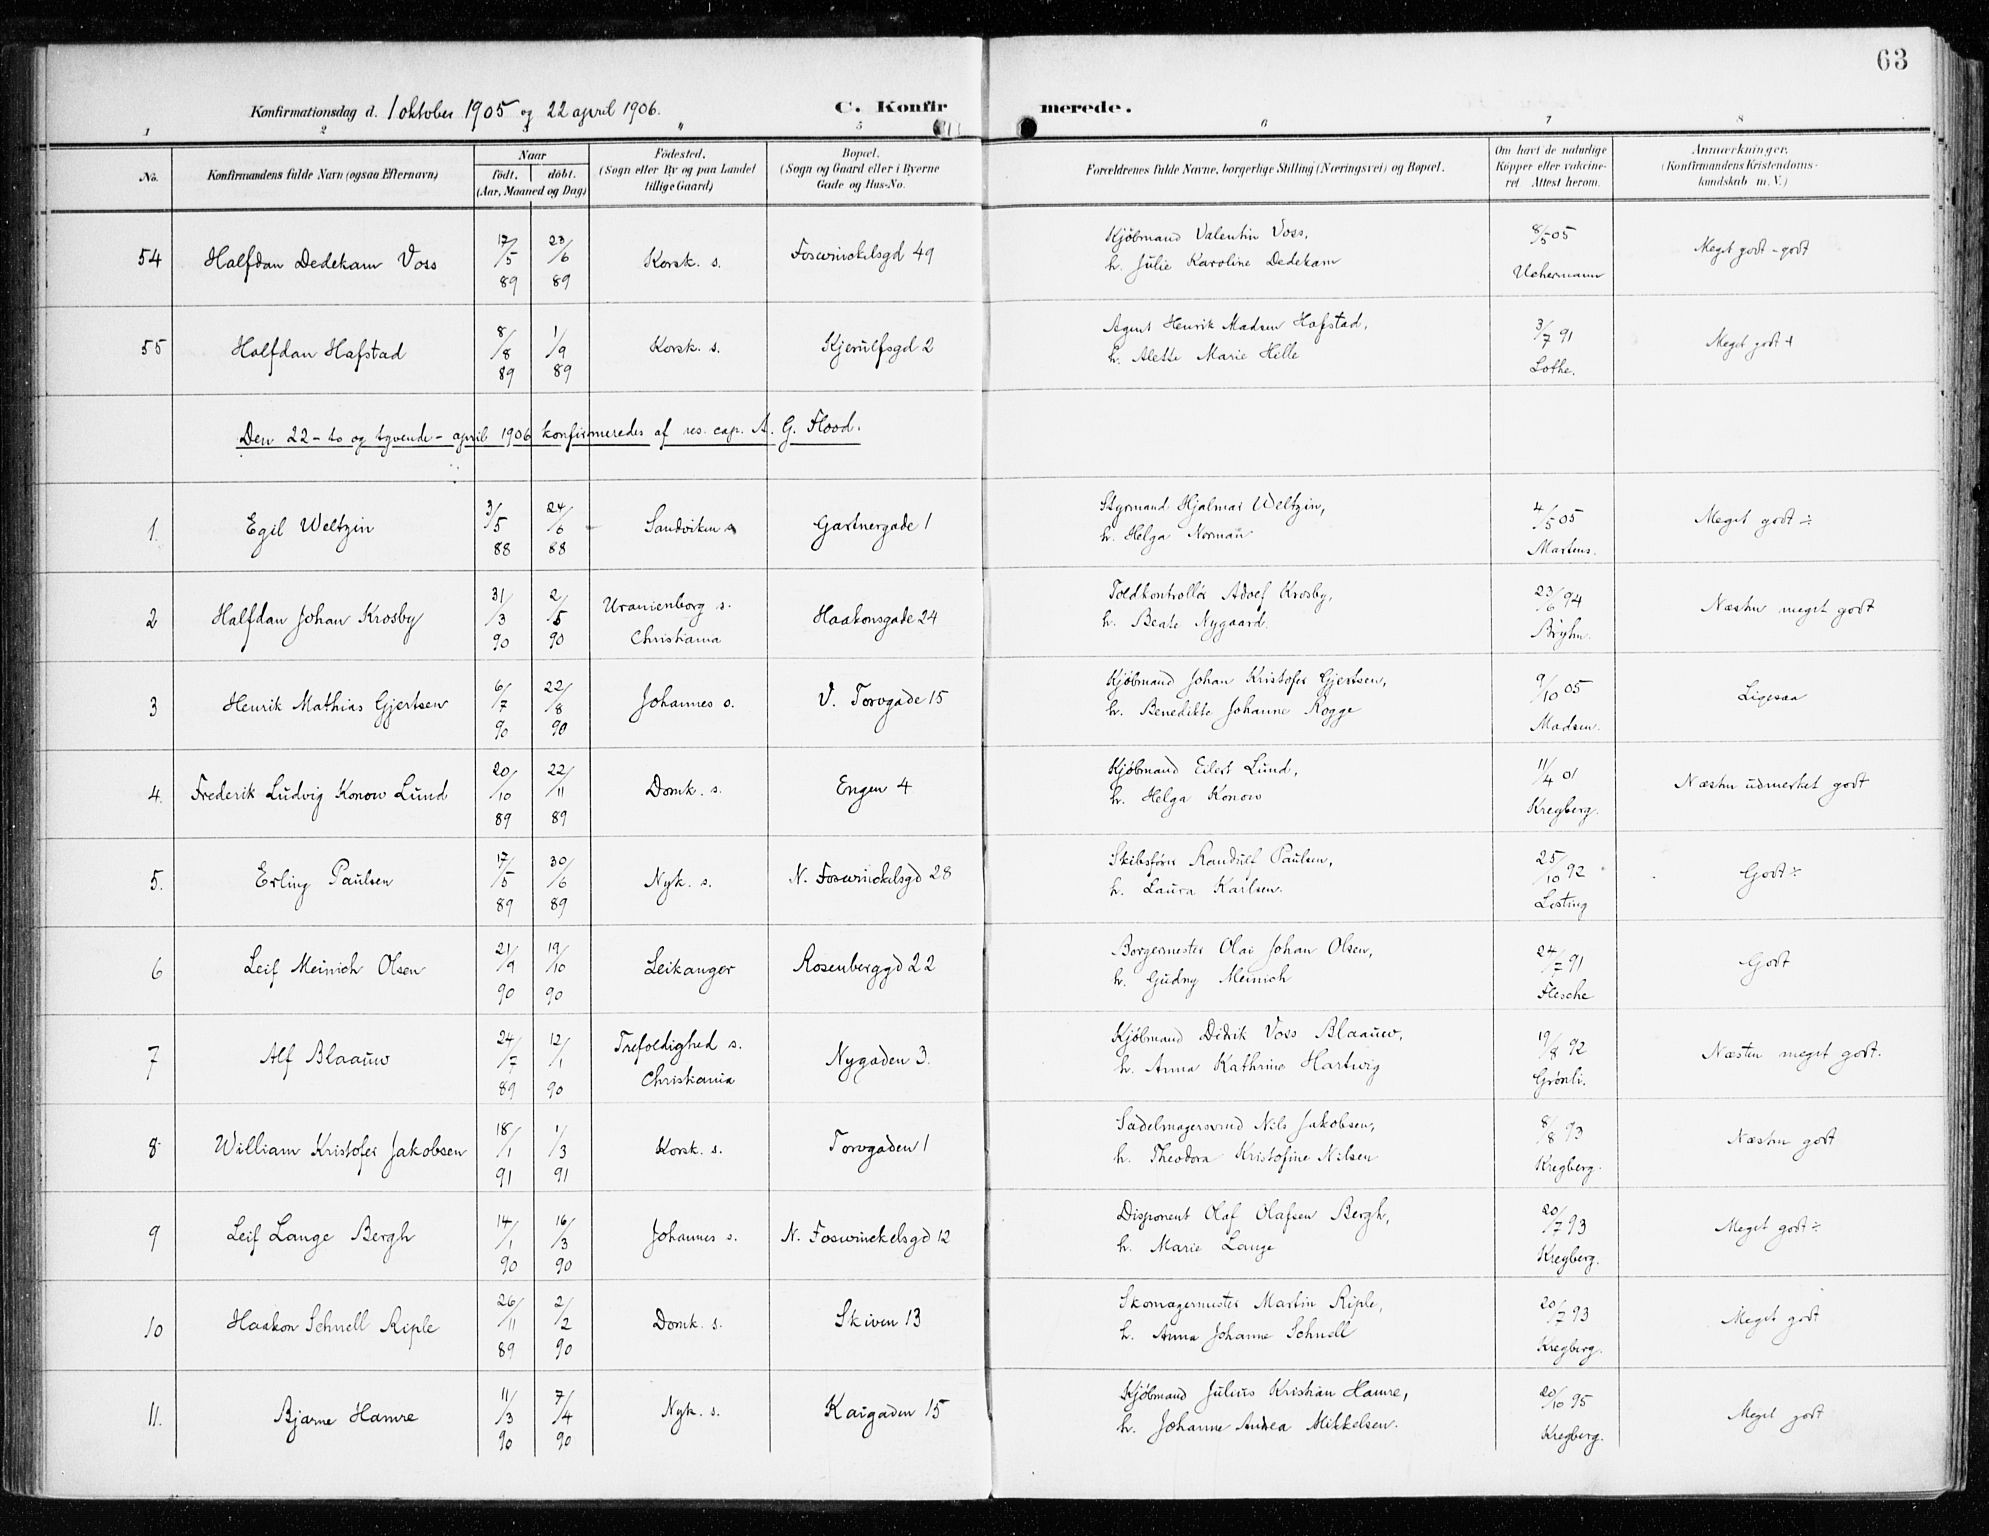 63
Konfirmationsdag d. 1 oktober 1905 og 22 april 1906.
C. Konfirmerede.
1 2 3 4 5 6 7 8
No.
Konfirmandens fulde Navn (ogsaa Efternavn)
Naar
födt. döbt.
(Aar, Maaned og Dag)
Födested.
(Sogn eller By og paa Landet
tillige Gaard)
Bopæl.
(Sogn og Gaard eller i Byerne
Gade og Hus-No.
Forældrenes fulde Navne, borgerlige Stilling (Næringsvei) og Bopæl.
Om havt de naturlige
Kopper eller vakcine-
ret. Attest herom.
Anmærkninger.
(Konfirmandens Kristendoms-
kundskab m. V.)
54 Halfdan Dedekam Voss 17/5 89 23/6 89 Korsk. s. Foswinckelsgd 49
Kjøbmand Valentin Voss,
h. Julie Karoline Dedekam
8/5 05
Uchermann
Meget godt - godt
55 Halfdan Hafstad 8/8 89 1/9 89 Korsk. s. Kjerulfsgd 2
Agent Henrik Madsen Hafstad,
h. Alette Marie Hille
3/7 91
Lothe.
Meget godt +
Den 22 - to og tyvende - april 1906 konfirmeredes af res. cap. A. G. Flood.
1. Egil Weltzin 3/5 88 24/6 88 Sandviken s Gartnergade 1
Styrmand Hjalmar Weltzin,
h. Helga Norman
4/5 05
Martens.
Meget godt ÷
2 Halfdan Johan Krosby 31/3 90 2/5 90 Uranienborg s.
Christiania
Haakonsgade 24
Toldkontrollør Adolf Krosby,
h. Beate Nygaard.
23/6 94
Bryhn.
Næsten meget godt
3 Henrik Mathias Gjertsen 6/7 90 22/8 90 Johannes s. V. Torvgade 15
Kjøbmand Johan Kristofer Gjertsen,
h. Benedikte Johanne Rogge
9/10 05
Madsen.
Ligesaa
4. Frederik Ludvig Konow Lund 20/10 89 22/11 89 Domk. s. Engen 4
Kjøbmand Eilert Lund,
h. Helga Konow
11/4 01
Kregberg.
Næsten udmerket godt
5. Erling Paulsen 17/5 89 30/6 89 Nyk. s. N. Foswinckelsgd 28
Skibsfører Randulf Paulsen,
h. Laura Karlsen.
25/10 92
Lesting
Godt ÷
6 Leif Meinich Olsen 21/9 90 19/10 90 Leikanger Rosenberggd 22
Borgermester Olai Johan Olsen,
h. Gudny Meinich
24/7 91
Flesche
Godt
7 Alf Blaauw 24/7 89 12/1 90 Trefoldighed s.
Christiania
Nygaden 3.
Kjøbmand Didrik Voss Blaauw,
h. Anna Kathrine Hartwig
19/8 92
Grønli.
Næsten meget godt.
8 William Kristofer Jakobsen 18/1 91 1/3 91 Korsk. s. Torvgaden 1
Sadelmagersvend Nils Jakobsen,
h. Theodora Kristofine Nilsen
8/8 93
Kregberg.
Næsten godt
9 Leif Lange Bergh 14/1 90 16/3 90 Johannes s. N. Foswinckelsgd 12
Disponent Olaf Olafsen Bergh,
h. Marie Lange
20/7 93
Kregberg.
Meget godt ÷
10 Haakon Schnell Riple 26/11 89 2/2 90 Domk. s. Skiven 13
Skomagermester Martin Riple,
h. Anna Johanne Schnell
20/7 93
Kregberg.
Meget godt
11. Bjarne Hamre 11/3 90 7/4 90 Nyk. s. Kaigaden 15
Kjøbmand Julius Kristian Hamre,
h. Johanne Andrea Mikkelsen.
20/10 95
Kregberg.
Meget godt